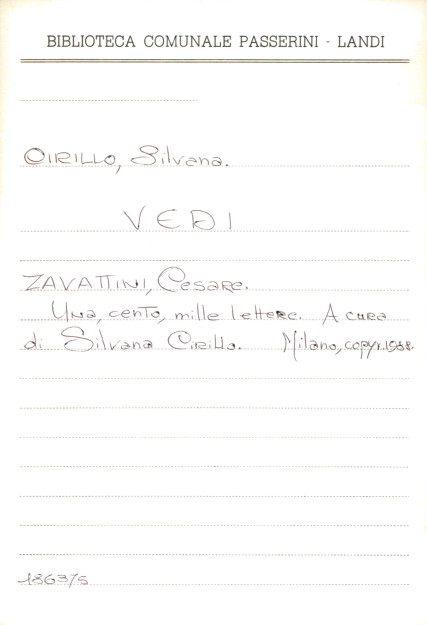 BIBLIOTECA COMUNALE PASSERINI - LANDI
CIRILLO, Silvana.
VEDI
ZAVATTINI, Cesare.
Una, cento, mille lettere. A cura
di Silvana Cirillo. Milano, copyr. 1988.
186375